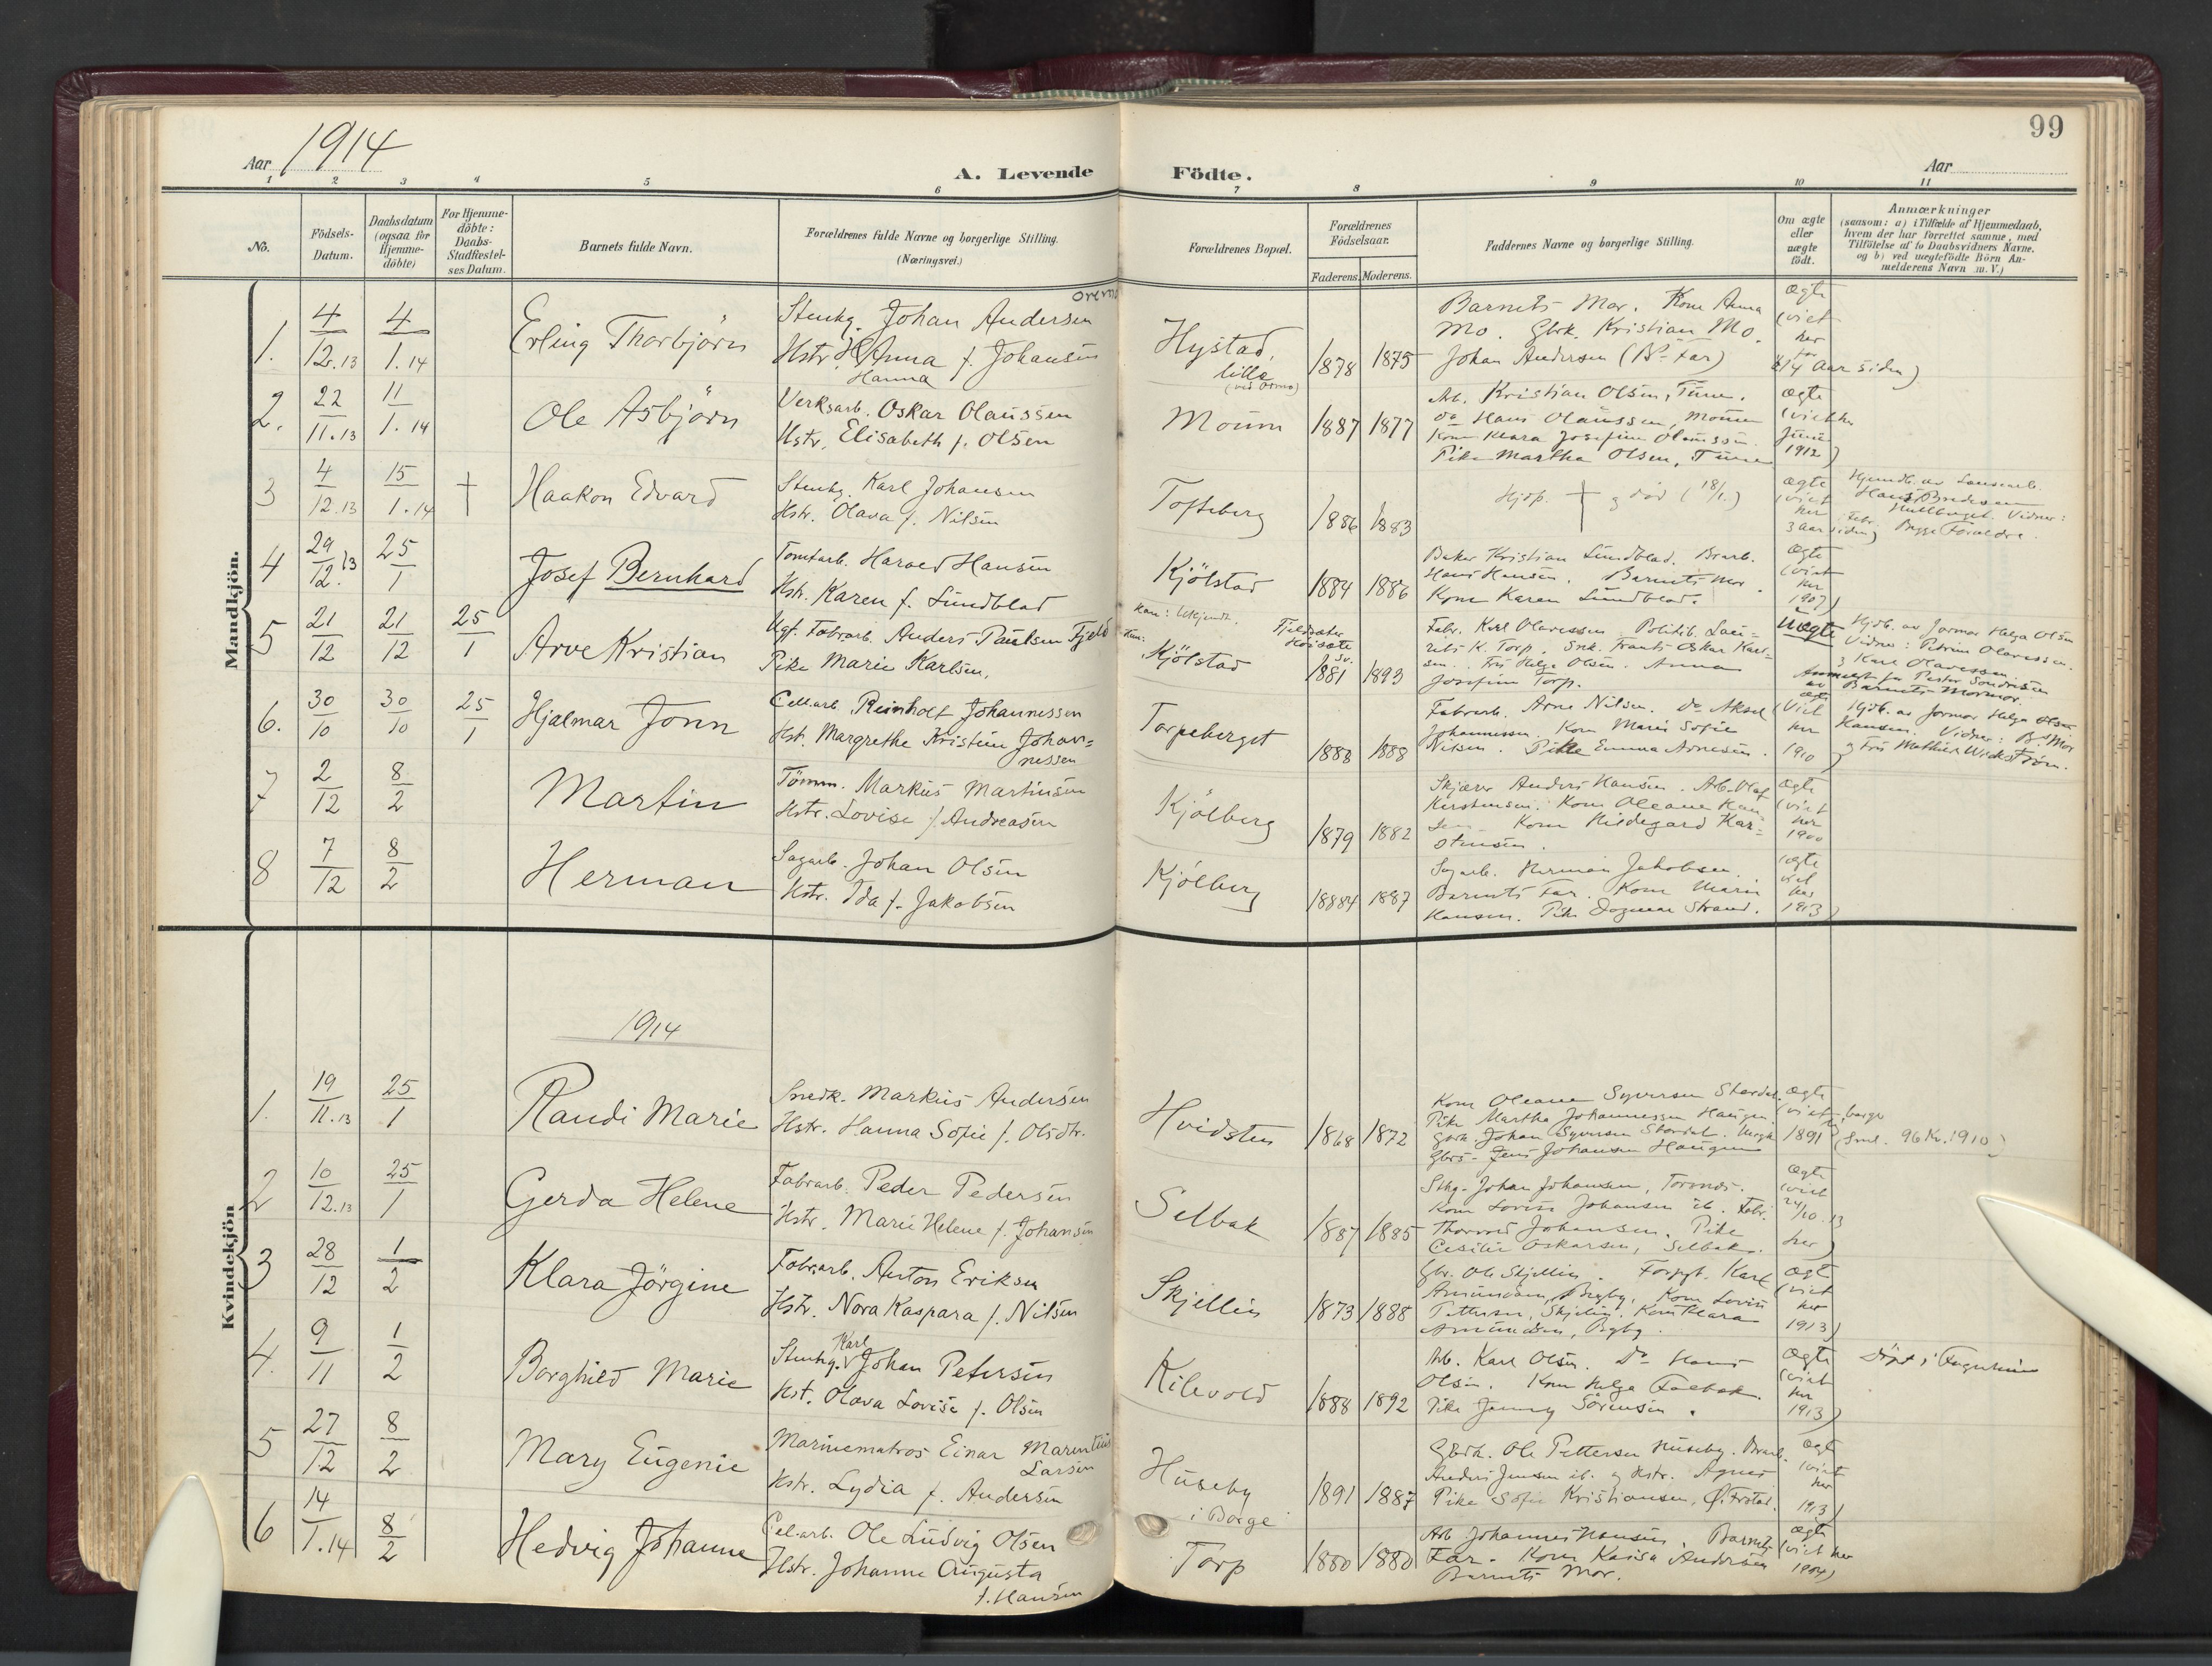 99
Aar 1914
A. Levende Födte.
Aar
1 2 3 4 5 6 7 8 9 10 11
No.
Födsels-Datum.
Daabsdatum (ogsaa for Hjemme-döbte)
For Hjemme-döbte: Daabs-Stadfæstel-ses Datum.
Barnets fulde Navn.
Forældrenes fulde Navne og borgerlige Stilling.
(Næringsvei.)
Forældrenes Bopæl.
Forældrenes Födselsaar.
Faderens. Moderens.
Faddernes Navne og borgerlige Stilling.
Om ægte eller uægte födt.
Anmærkninger
(saasom: a) i Tilfælde af Hjemmedaab,
hvem der har forrettet samme, med
Tilföielse af to Daabsvidners Navne.
og b) ved uægtefödte Börn An-
melderens Navn m. V.)
Mandkjön.
1. 4/12.13 4/1.14 Erling Thorbjörn
Stenhg. Johan Andersen
Hstr. Anna f. Johansen
Hanna
Hystad, lille
1878 1875
Barnets Mor. Kone Anna
Mo. Gbrk. Kristian Mo.
Johan Andersen (B's Far)
Ægte (viet her for 14 Aar siden)
2. 22/11.13 11/1.14 Ole Asbjörn
Verksarb. Oskar Olaussen
Hstr. Elisabeth f. Olsen
Moum
1887 1877
Arb. Kristian Olsen, Tune.
Do Hans Olaussen, Moum
Kone Klara Josefine Olaussen.
Pike Martha Olsen, Tune
ægte (viet her Juni 1912)
3 4/12.13 15/1.14 † Haakon Edvard
Stenhg. Karl Johansen
Hstr. Olava f. Nilsen
Tofteberg
1886 1883
Hjdp. † død (18/1.)
ægte (viet her Febr. 3 aar siden)
Vidner:
Begge Forældre.
4 29/12.13 25/1 Josef Bernhard
Tomtarb. Harald Hansen
Hstr. Karen f. Lundblad
Kjölstad
1884 1886
Baker Kristian Lundblad. Brarb.
Hans Hansen. Barnets Mor.
Kone Karen Lundblad.
Ægte (viet her 1907)
5 21/12 21/12 25/1 Arve Kristian
Ugf. Fabrarb. Anders Paulsen Fjeld
Pike Marie Karlsen.
Han: Ukjendt.
Hun: Kjölstad
1881 1893
Fabr. Karl Olavessen
K. Torp. Snk. Frants Oskar Karl-
sen. Frü Helga Olsen. Anna
Josefine Torp.
Uægte
Hjdb. av Jormor Helga Olsen
Vidner: Petrine Olavessen.
& Karl Olavessen
av Barnets Mormor.
6. 30/10 30/10 25/1 Hjalmar Jonn
Cell.arb. Reinholt Johannessen
Hst. Margrethe Kristine Johan=
nessen
Torpeberget
1888 1888
Fabrarb. Arne Nilsen. Do Aksel
Johannessen. Kone Marie Sofie
Nilsen. Pike Emma Arnesen.
ægte (Viet her 1910)
Hjdb. av Jormor Helga Olsen
Vidner: B's Mor
7 2/12 8/2 Martin
Tömm. Markus Martinsen
Hstr. Lovise f. Andreasen
Kjölberg
1879 1882
Skjærer Anders Hansen. Arb. Olaf
Karstensen. Kone Oleane Han-
sen. Kone Hildegard Kar-
stensen.
ægte (viet her 1900
8 7/12 8/2 Herman
Sagarb. Johan Olsen
Hstr. Ida f. Jakobsen
Kjölberg
18884 1887
Sagarb. Herman Jakobsen.
Barnets Far. Kone Marie
Hansen. Pike Dagmar Strand.
ægte viet her 1913)
Kvindekjön
1914
1. 19/11.13 25/1 Randi Marie
Snedk. Markus Andersen
Hstr. Hanna Sofie f. Olsdtr.
Hvidsten
1868 1872
Kone Oleane Syversen Stordal.
Pike Martha Johannessen Haugen
Gbrk. Johan Syversen Stordal.
Gbrs- Jens Johansen Haugen
Ægte (viet i 1891)
(Sml. 96 Kv. 1910)
2 10/12.13 25/1 Gerda Helene
Fabrarb. Peder Pedersen
Hstr. Marie Helene f. Johansen
Selbak
1887 1885
Sthg. Johan Johansen, Torsnes.
Kone Lovise Johansen ib. Fabr.
Thorvald Johansen. Pike
Cesilie Oskarsen, Selbak.
ægte (viet 24/10.13 her)
3 28/12 1/2 Klara Jörgine
Fabr.arb. Anton Eriksen
Hstr. Nora Kaspara f. Nilsen
Skjellin
1873 1888
Gbr. Ole Skjellin. Forpgt. Karl
Amundsen, Bygby. Kone Lovise
Pettersen, Skjelin. Kone Klara
Amundsen, Bygby.
ægte (viet her 1913)
4. 9/11 1/2 Borghild Marie
Karl
Stenhg. Johan Petersen
Hst. Olava Lovise f. Olsen
Kilevold
1888 1892
Arb. Karl Olsen. Do Hans
Olsen. Kone Helga Falbak.
Pike Jenny Sörensen.
ægte (viet her 1913)
Döpt i
5 27/12 8/2 Mary Eugenie
Marinematros Einar Marentius
Larsen
Hstr. Lydia f. Andersen
Huseby i Borge
1891 1887
Gbrk. Ole Pettersen Huseby. Brarb.
Anders Jensen ib. & Hstr. Agnes
Pike Sofie Kristiansen, Ø. Frstad.
ægte (viet her 1913)
6 14/1.14 8/2 Hedvig Johanne
Cel.arb. Ole Ludvig Olsen
Hstr. Johanne Augusta
f. Hansen
Torp
1880 1880
Arb. Johannes Hansen. Barnets
Far. Kone Kaisa Andersen
Barnets Mor.
Ægte (viet her 1904)